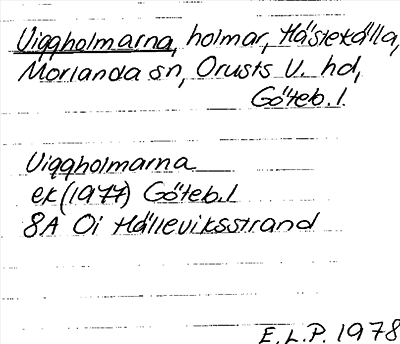 Viggholmarna, holmar, Hästekälla,
Morlanda sn, Orusts V. hd,
Göteb. l.
Viggholmarna
ek (1977) Göteb. l
8A Oi Hälleviksstrand
E. L. P. 1978